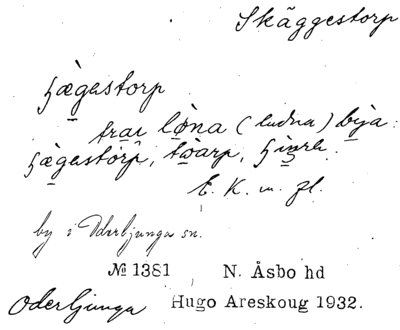 Skäggestorp
ʃàgastorp
trai lòna (ludna) bìja:
ʃàgastòrp, twàrp,
E. K. m. fl.
by i Oderljunga sn.
№ 1381 N. Åsbo hd
Oderljunga Hugo Areskoug 1932.